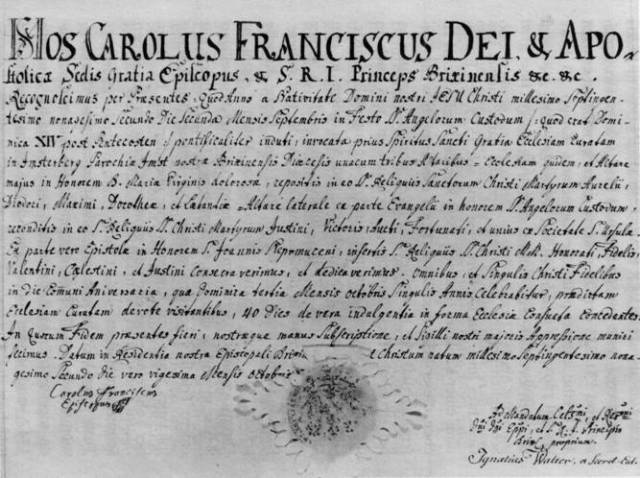 NOS CAROLUS FRANCISCUS DEI, & APO-
stolicæ Sedis Gratia Episcopus, & S. R. I. Princeps Brixinensis &c. &c.
Recognoscimus per Præsentes, Quod Anno a Nativitate Domini nostri JESU Christi millesimo Septingen-
tesimo nonagesimo Secundo Die Secunda Mensis Septembris in Festo SS. Angelorum Custodum /: quod erat Domi-
nica XIV post Pentecosten :/ pontificaliter induti, invocata prius Spiritus Sancti Gratia Ecclesiam Curatam
in Imsterberg Parochiæ Imst nostræ Brixinensis Diæcesis unacum tribus Altaribus Ecclesiam quidem, et Altare
majus in Honorem B. Mariæ Virginis dolorosæ, repositis in eo SS. Reliquiis Sanctorum Christi Martyrum Aurelii,
Diodori, Maximi, Dorotheæ, et Catandiæ Altare laterale ex parte Evangelii in honorem SS. Angelorum Custodum,
reconditis in eo SS. Reliquiis SS. Christi Martyrum Justini, Victoris, Aucti, Fortunati, et unius ex Societate S. Ursulæ
Ex parte vero Epistolæ in Honorem S. Joannis Nepomuceni, insertis SS. Reliquiis SS. Christi MM. Honorati, Fidelis,
Valentini, Cœlestini, et Justini consecraverimus, et dedicaverimus. omnibus, et Singulis Christi Fidelibus
in die Comuni Aniversaria, qua Dominica tertia Mensis Octobris Singulis Annis Celebrabitur, prædictam
Ecclesiam Curatam devote visitantibus, 40 Dies de vera indulgentia in forma Ecclesiæ Consueta Concedentes.
In Quorum Fidem præsentes fieri, nostræque manus Subscriptione, et Sigilli nostri majoris Appressione muniri
fecimus. Datum in Residentia nostra Episcopali Brixin Christum natum millesimo Septingentesimo nona-
gesimo Secundo die vero vigesima Mensis Octobris
Carolus Franciscus
Episcopus
Ad Mandatum Celsmi, et Revmi
Dni Dni Eppi, et S. R. I. Principis
Brix. proprium.
Ignatius Walser